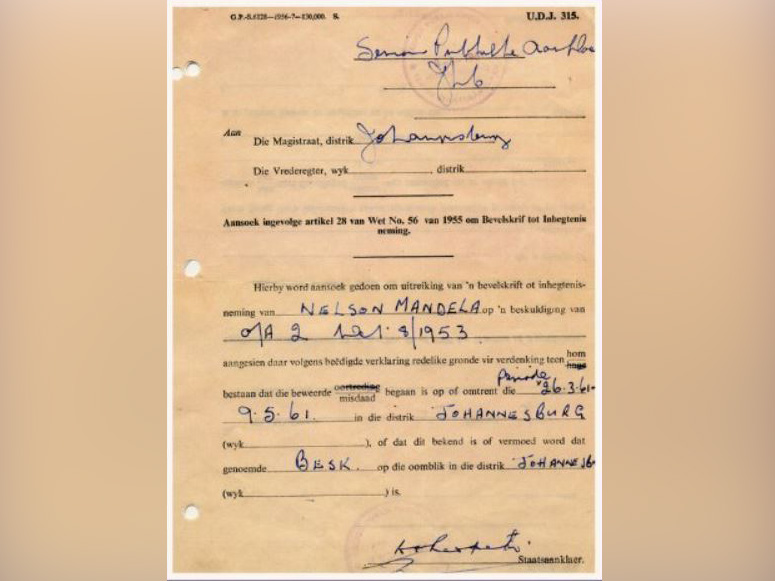 G.P.-S.6228—1956-7—130,000. S. U.D.J. 315.
Senior Publieke Aanklaer
Jhb
Aan
Die Magistraat, distrik Johannesburg
Die Vrederegter, wyk , distrik
Aansoek ingevolge artikel 28 van Wet No. 56 van 1955 om Bevelskrif tot Inhegtenis
neming.
Hierby word aansoek gedoen om uitreiking van 'n bevelskrift ot inhegtenis-
neming van NELSON MANDELA op 'n beskuldiging van
o/A 2 Wet 8/1953
aangesien daar volgens beëdigde verklaring redelike gronde vir verdenking teen hom
haar
bestaan dat die beweerde oortreding
misdaad begaan is op of omtrent die periode 26.3.61-
9.5.61. in die distrik JOHANNESBURG
(wyk ), of dat dit bekend is of vermoed word dat
genoemde BESK. op die oomblik in die distrik JOHANNESB
(wyk ) is.
Staatsaanklaer.